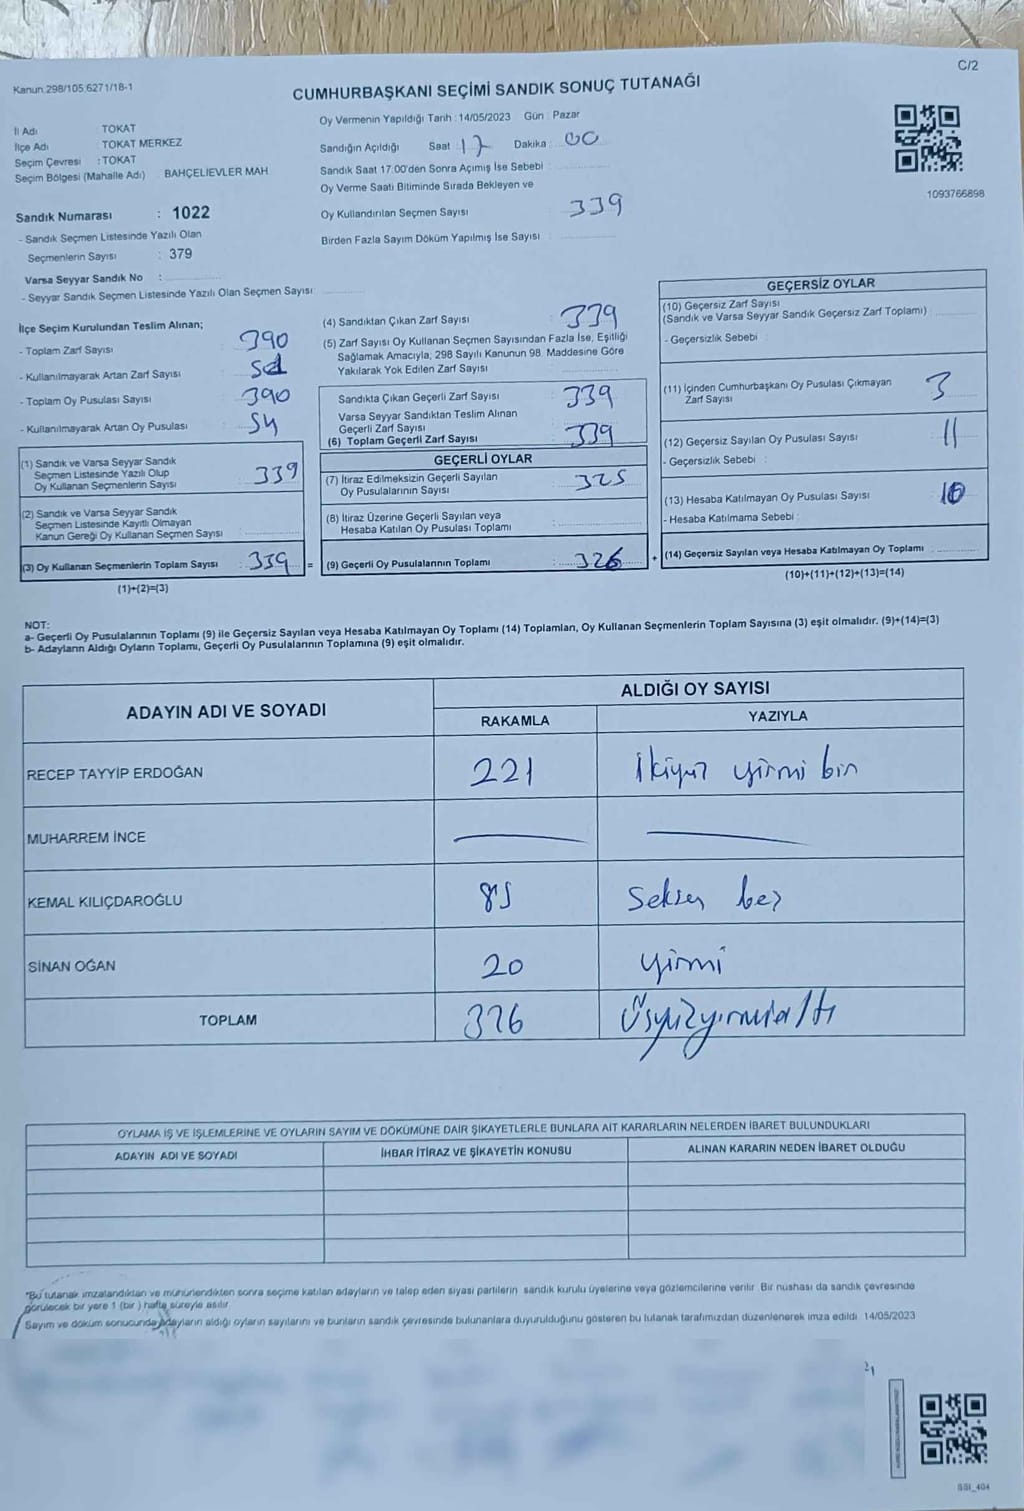 C/2
Kanun 298/105 6271/18-1
CUMHURBAŞKANI SEÇİMİ SANDIK SONUÇ TUTANAĞI
İl Adı TOKAT
İlçe Adı TOKAT MERKEZ
Seçim Çevresi : TOKAT
Seçim Bölgesi (Mahalle Adı) BAHÇELİEVLER MAH
Sandık Numarası : 1022
- Sandık Seçmen Listesinde Yazılı Olan
Seçmenlerin Sayısı : 379
Varsa Seyyar Sandık No :
- Seyyar Sandık Seçmen Listesinde Yazılı Olan Seçmen Sayısı
Oy Vermenin Yapıldığı Tarih : 14/05/2023 Gün : Pazar
Sandığın Açıldığı Saat 17 Dakika 00
Sandık Saat 17:00'den Sonra Açımış İse Sebebi :
Oy Verme Saati Bitiminde Sırada Bekleyen ve
Oy Kullandırılan Seçmen Sayısı 339
Birden Fazla Sayım Döküm Yapılmış İse Sayısı
1093766898
İlçe Seçim Kurulundan Teslim Alınan;
- Toplam Zarf Sayısı 390
- Kullanılmayarak Artan Zarf Sayısı
- Toplam Oy Pusulası Sayısı 390
- Kullanılmayarak Artan Oy Pusulası
(1) Sandık ve Varsa Seyyar Sandık
Seçmen Listesinde Yazılı Olup
Oy Kullanan Seçmenlerin Sayısı 339
(2) Sandık ve Varsa Seyyar Sandık
Seçmen Listesinde Kayıtlı Olmayan
Kanun Gereği Oy Kullanan Seçmen Sayısı
(3) Oy Kullanan Seçmenlerin Toplam Sayısı : 339 =
(1)+(2)=(3)
(4) Sandıktan Çıkan Zarf Sayısı 339
(5) Zarf Sayısı Oy Kullanan Seçmen Sayısından Fazla İse, Eşitliği
Sağlamak Amacıyla, 298 Sayılı Kanunun 98. Maddesine Göre
Yakılarak Yok Edilen Zarf Sayısı
Sandıkta Çıkan Geçerli Zarf Sayısı 339
Varsa Seyyar Sandıktan Teslim Alınan
Geçerli Zarf Sayısı
(6) Toplam Geçerli Zarf Sayısı 339
GEÇERLİ OYLAR
(7) İtiraz Edilmeksizin Geçerli Sayılan
Oy Pusulalarının Sayısı 325
(8) İtiraz Üzerine Geçerli Sayılan veya
Hesaba Katılan Oy Pusulası Toplamı
(9) Geçerli Oy Pusulalarının Toplamı 326 +
GEÇERSİZ OYLAR
(10) Geçersiz Zarf Sayısı
(Sandık ve Varsa Seyyar Sandık Geçersiz Zarf Toplamı)
- Geçersizlik Sebebi :
(11) İçinden Cumhurbaşkanı Oy Pusulası Çıkmayan
Zarf Sayısı 3
(12) Geçersiz Sayılan Oy Pusulası Sayısı 11
- Geçersizlik Sebebi :
(13) Hesaba Katılmayan Oy Pusulası Sayısı
- Hesaba Katılmama Sebebi
(14) Geçersiz Sayılan veya Hesaba Katılmayan Oy Toplamı
(10)+(11)+(12)+(13)=(14)
NOT:
a- Geçerli Oy Pusulalarının Toplamı (9) ile Geçersiz Sayılan veya Hesaba Katılmayan Oy Toplamı (14) Toplamları, Oy Kullanan Seçmenlerin Toplam Sayısına (3) eşit olmalıdır. (9)+(14)=(3)
b- Adayların Aldığı Oyların Toplamı, Geçerli Oy Pusulalarının Toplamına (9) eşit olmalıdır.
ADAYIN ADI VE SOYADI ALDIĞI OY SAYISI
RAKAMLA YAZIYLA
RECEP TAYYİP ERDOĞAN 221 İkiyüz yirmi bir
MUHARREM İNCE
KEMAL KILIÇDAROĞLU 85 Seksen beş
SİNAN OĞAN 20 yirmi
TOPLAM 326 Üçyüzyirmialtı
OYLAMA İŞ VE İŞLEMLERİNE VE OYLARIN SAYIM VE DÖKÜMÜNE DAİR ŞİKAYETLERLE BUNLARA AİT KARARLARIN NELERDEN İBARET BULUNDUKLARI
ADAYIN ADI VE SOYADI İHBAR İTİRAZ VE ŞİKAYETİN KONUSU ALINAN KARARIN NEDEN İBARET OLDUĞU
*Bu tutanak imzalandıktan ve mühürlendikten sonra seçime katılan adayların ve talep eden siyasi partilerin sandık kurulu üyelerine veya gözlemcilerine verilir. Bir nüshası da sandık çevresinde
görülecek bir yere 1 (bir) hafta süreyle asılır
Sayım ve döküm sonucunda adayların aldığı oyların sayılarını ve bunların sandık çevresinde bulunanlara duyurulduğunu gösteren bu tutanak tarafımızdan düzenlenerek imza edildi. 14/05/2023
BBI_404